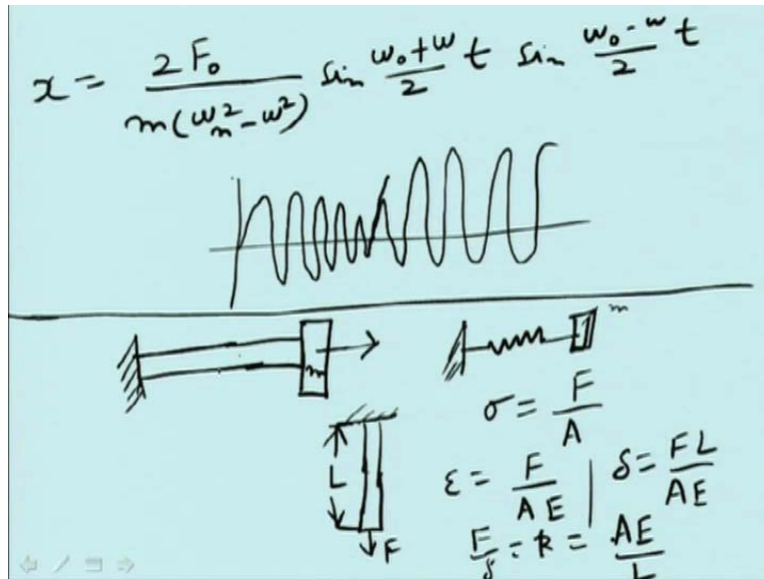 x = 2F₀ / m(ω²ₙ - ω²) sin (ω₀+ω)/2 t sin (ω₀-ω)/2 t
m
m
σ = F/A
L
F
ε = F/AE | δ = FL/AE
F/δ = k = AE/L